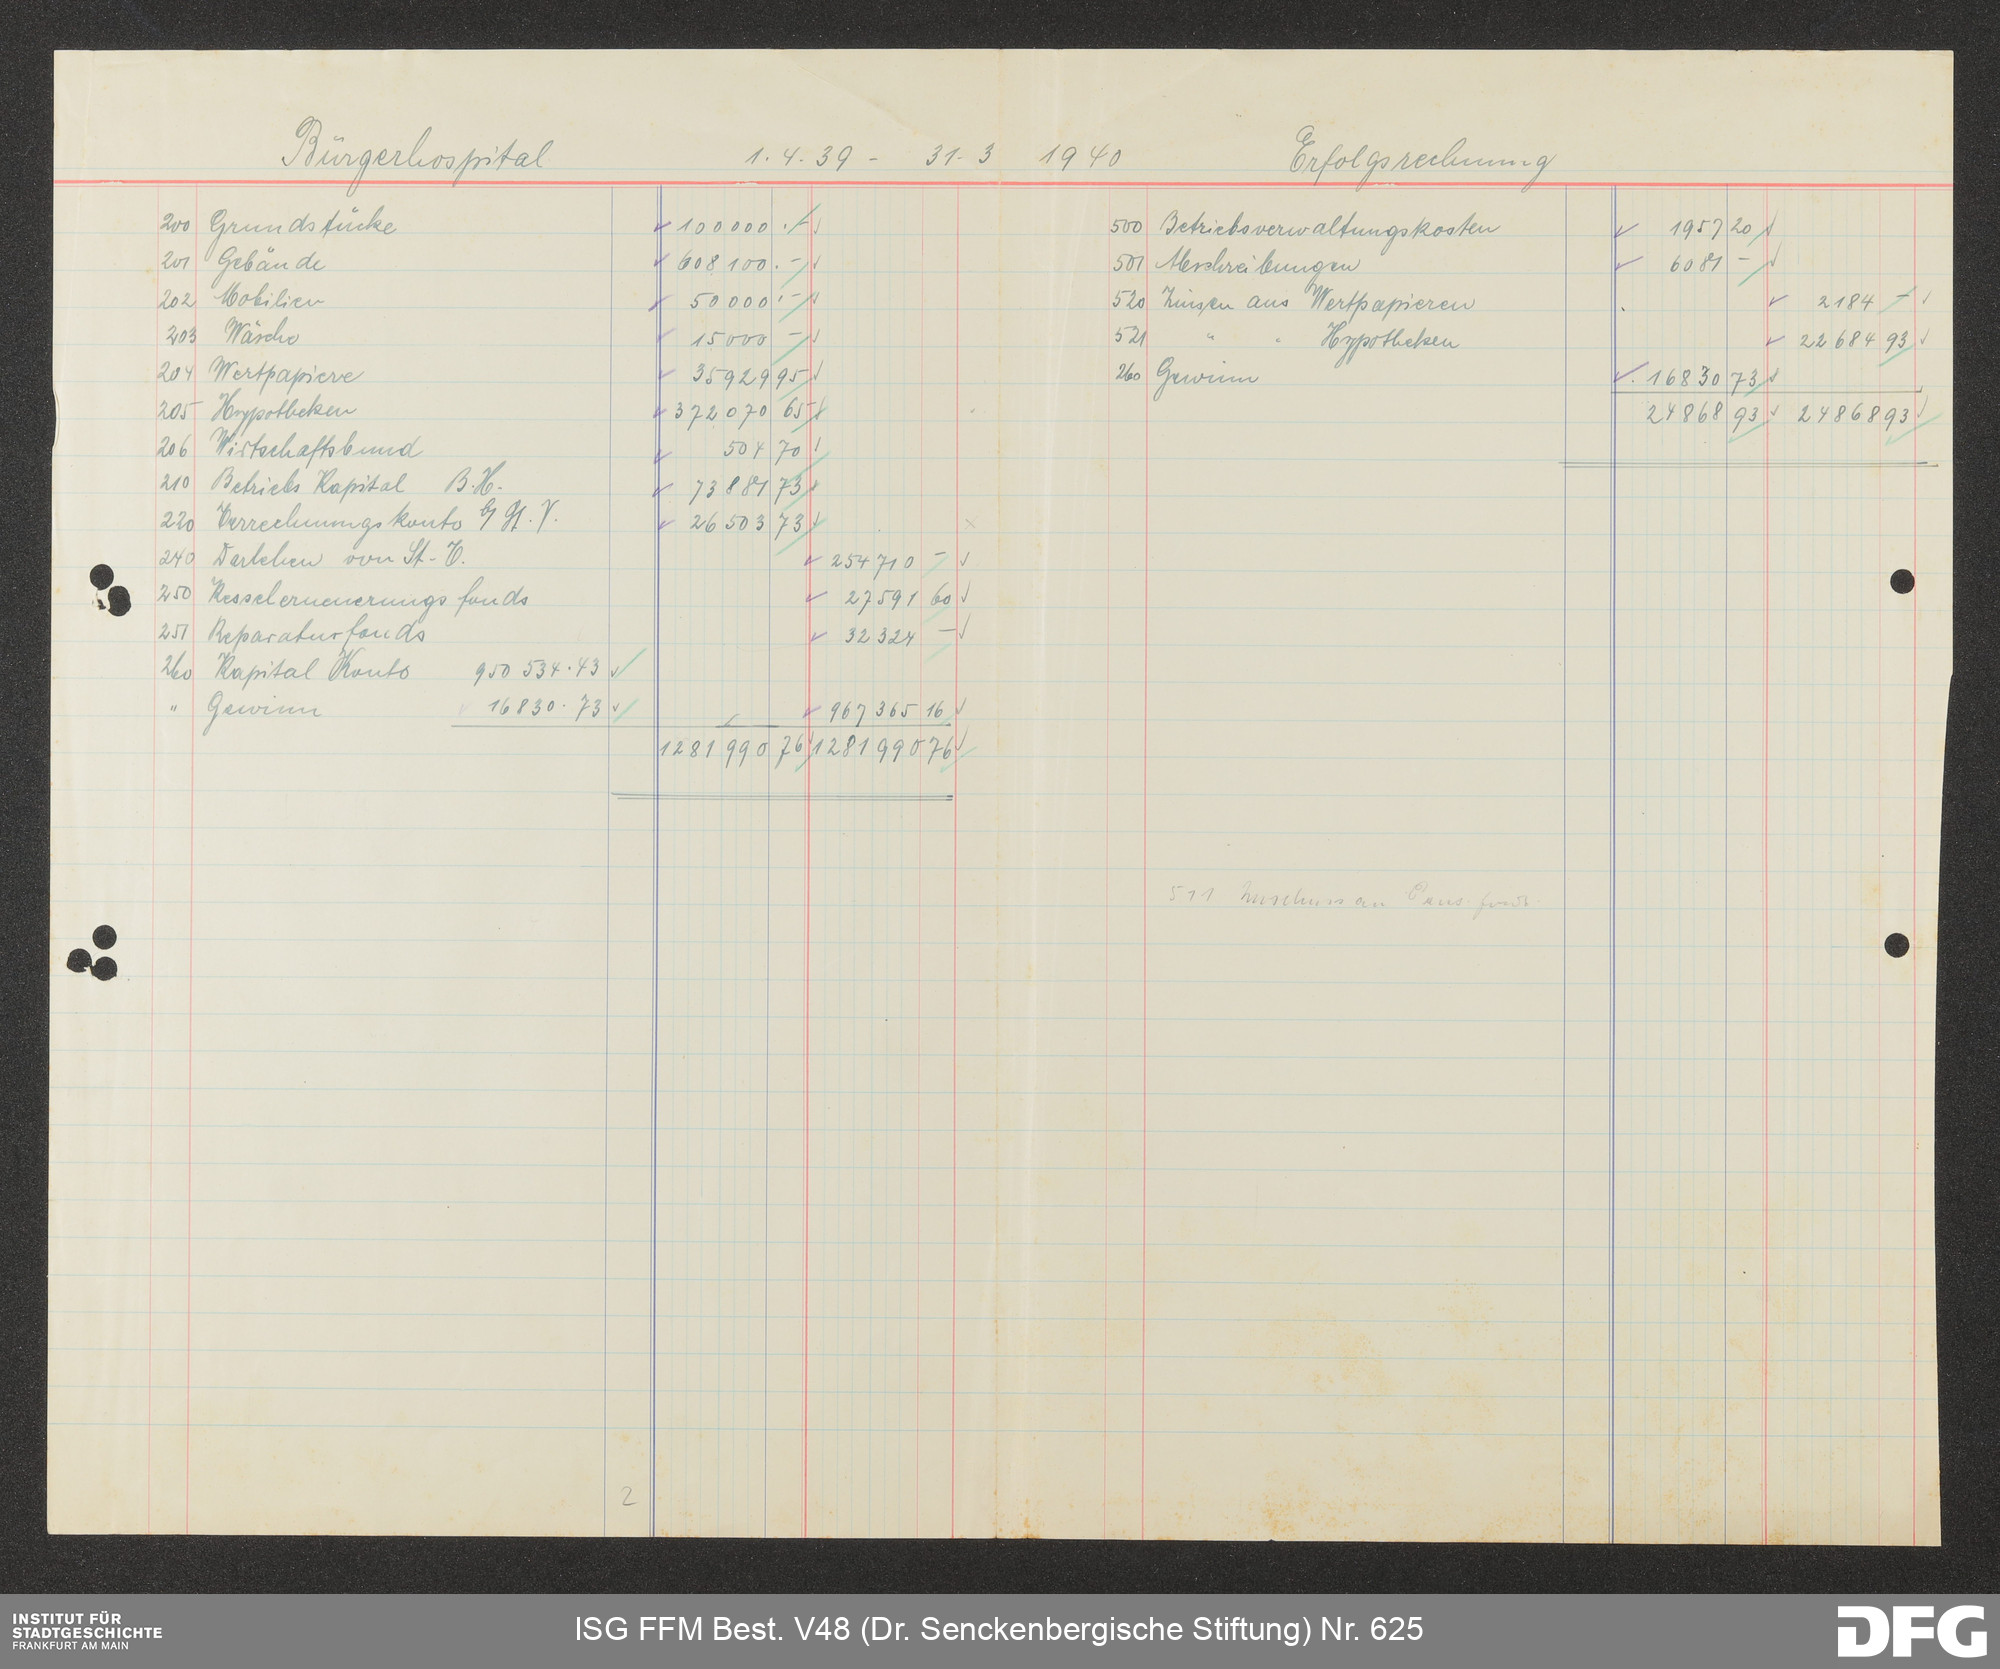 Bürgerhospital 1.4.39 - 31.3 1940 Erfolgsrechnung
200 Grundstücke 100000.-
201 Gebäude 608100.-
202 Mobilien 50000.-
203 Wäsche 15000 -
204 Wertpapiere 35929 95
205 Hypotheken 372070 65
206 Wirtschaftsbund 504 70
210 Betriebs Kapital B.H. 73881 73
220 Verrechnungskonto 26503 73
240 Darlehen von St.-V. 254710 -
250 Kesselerneuerungsfonds 27591 60
251 Reparaturfonds 32324 -
260 Kapital Konto 950534.43
" Gewinn 16830.73 967365 16
1281990 76 1281990 76
500 Betriebsverwaltungskosten 1957 20
501 Abschreibungen 6081 -
520 Zinsen aus Wertpapieren 2184 -
521 " " Hypotheken 22684 93
260 Gewinn 16830 73
24868 93 24868 93
511 Zuschuss an Pens. fonds
2
INSTITUT FÜR
STADTGESCHICHTE
FRANKFURT AM MAIN
ISG FFM Best. V48 (Dr. Senckenbergische Stiftung) Nr. 625
DFG